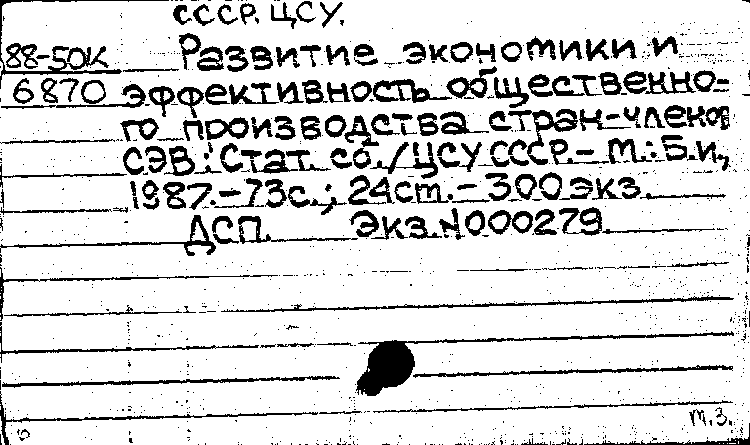 СССР. ЦСУ.
88-50К Развитие экономики и
6870 эффективность общественно-
го производства стран-членов
СЭВ: Стат. сб./ЦСУ СССР.- М.: Б.и.,
1987.-73с.; 24см.-300экз.
ДСП. Экз.N000279.
т.з.